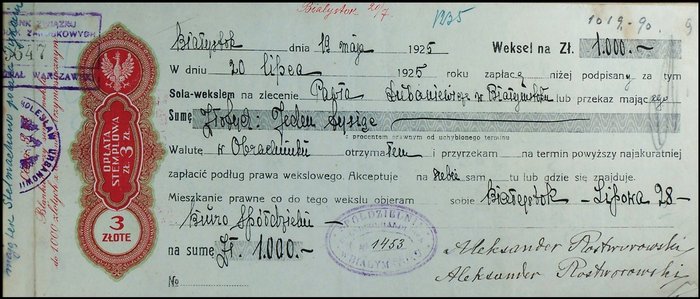 Białystok 20/7.
1235
1019.-90.
9
NK ZWIĄZKU
ZAROBKOWYCH
647
ZIAŁ WARSZAWSKI
BOLESŁAW URJANOWICZ
majątek Stelmachowo przez Tykocin
do 1000 złotych
OPŁATA
STEMPLOWA
ZŁ. 3 ZŁ.
3
ZŁOTE
Białystok dnia 19 maja 1925 Weksel na Zł. 1.000.—
W dniu 20 lipca 1925 roku zapłacę niżej podpisany za tym
Sola-wekslem na zlecenie Papła w Białymstoku lub przekaz mającego
Sumę Złotych: Jeden tysiąc
i procentem prawnym od uchybionego terminu
Walutę w Obrachunku otrzymałem i przyrzekam na termin powyższy najakuratniej
zapłacić podług prawa wekslowego. Akceptuję na siebie sam tu lub gdzie się znajduję.
Mieszkanie prawne co do tego wekslu obieram sobie Białystok - Lipowa 28 -
Biuro Spółdzielni
na sumę Zł 1.000.—
SPÓŁDZIELNIA
1453
W BIAŁYMSTOKU
Aleksander Rostworowski
Aleksander Rostworowski
No